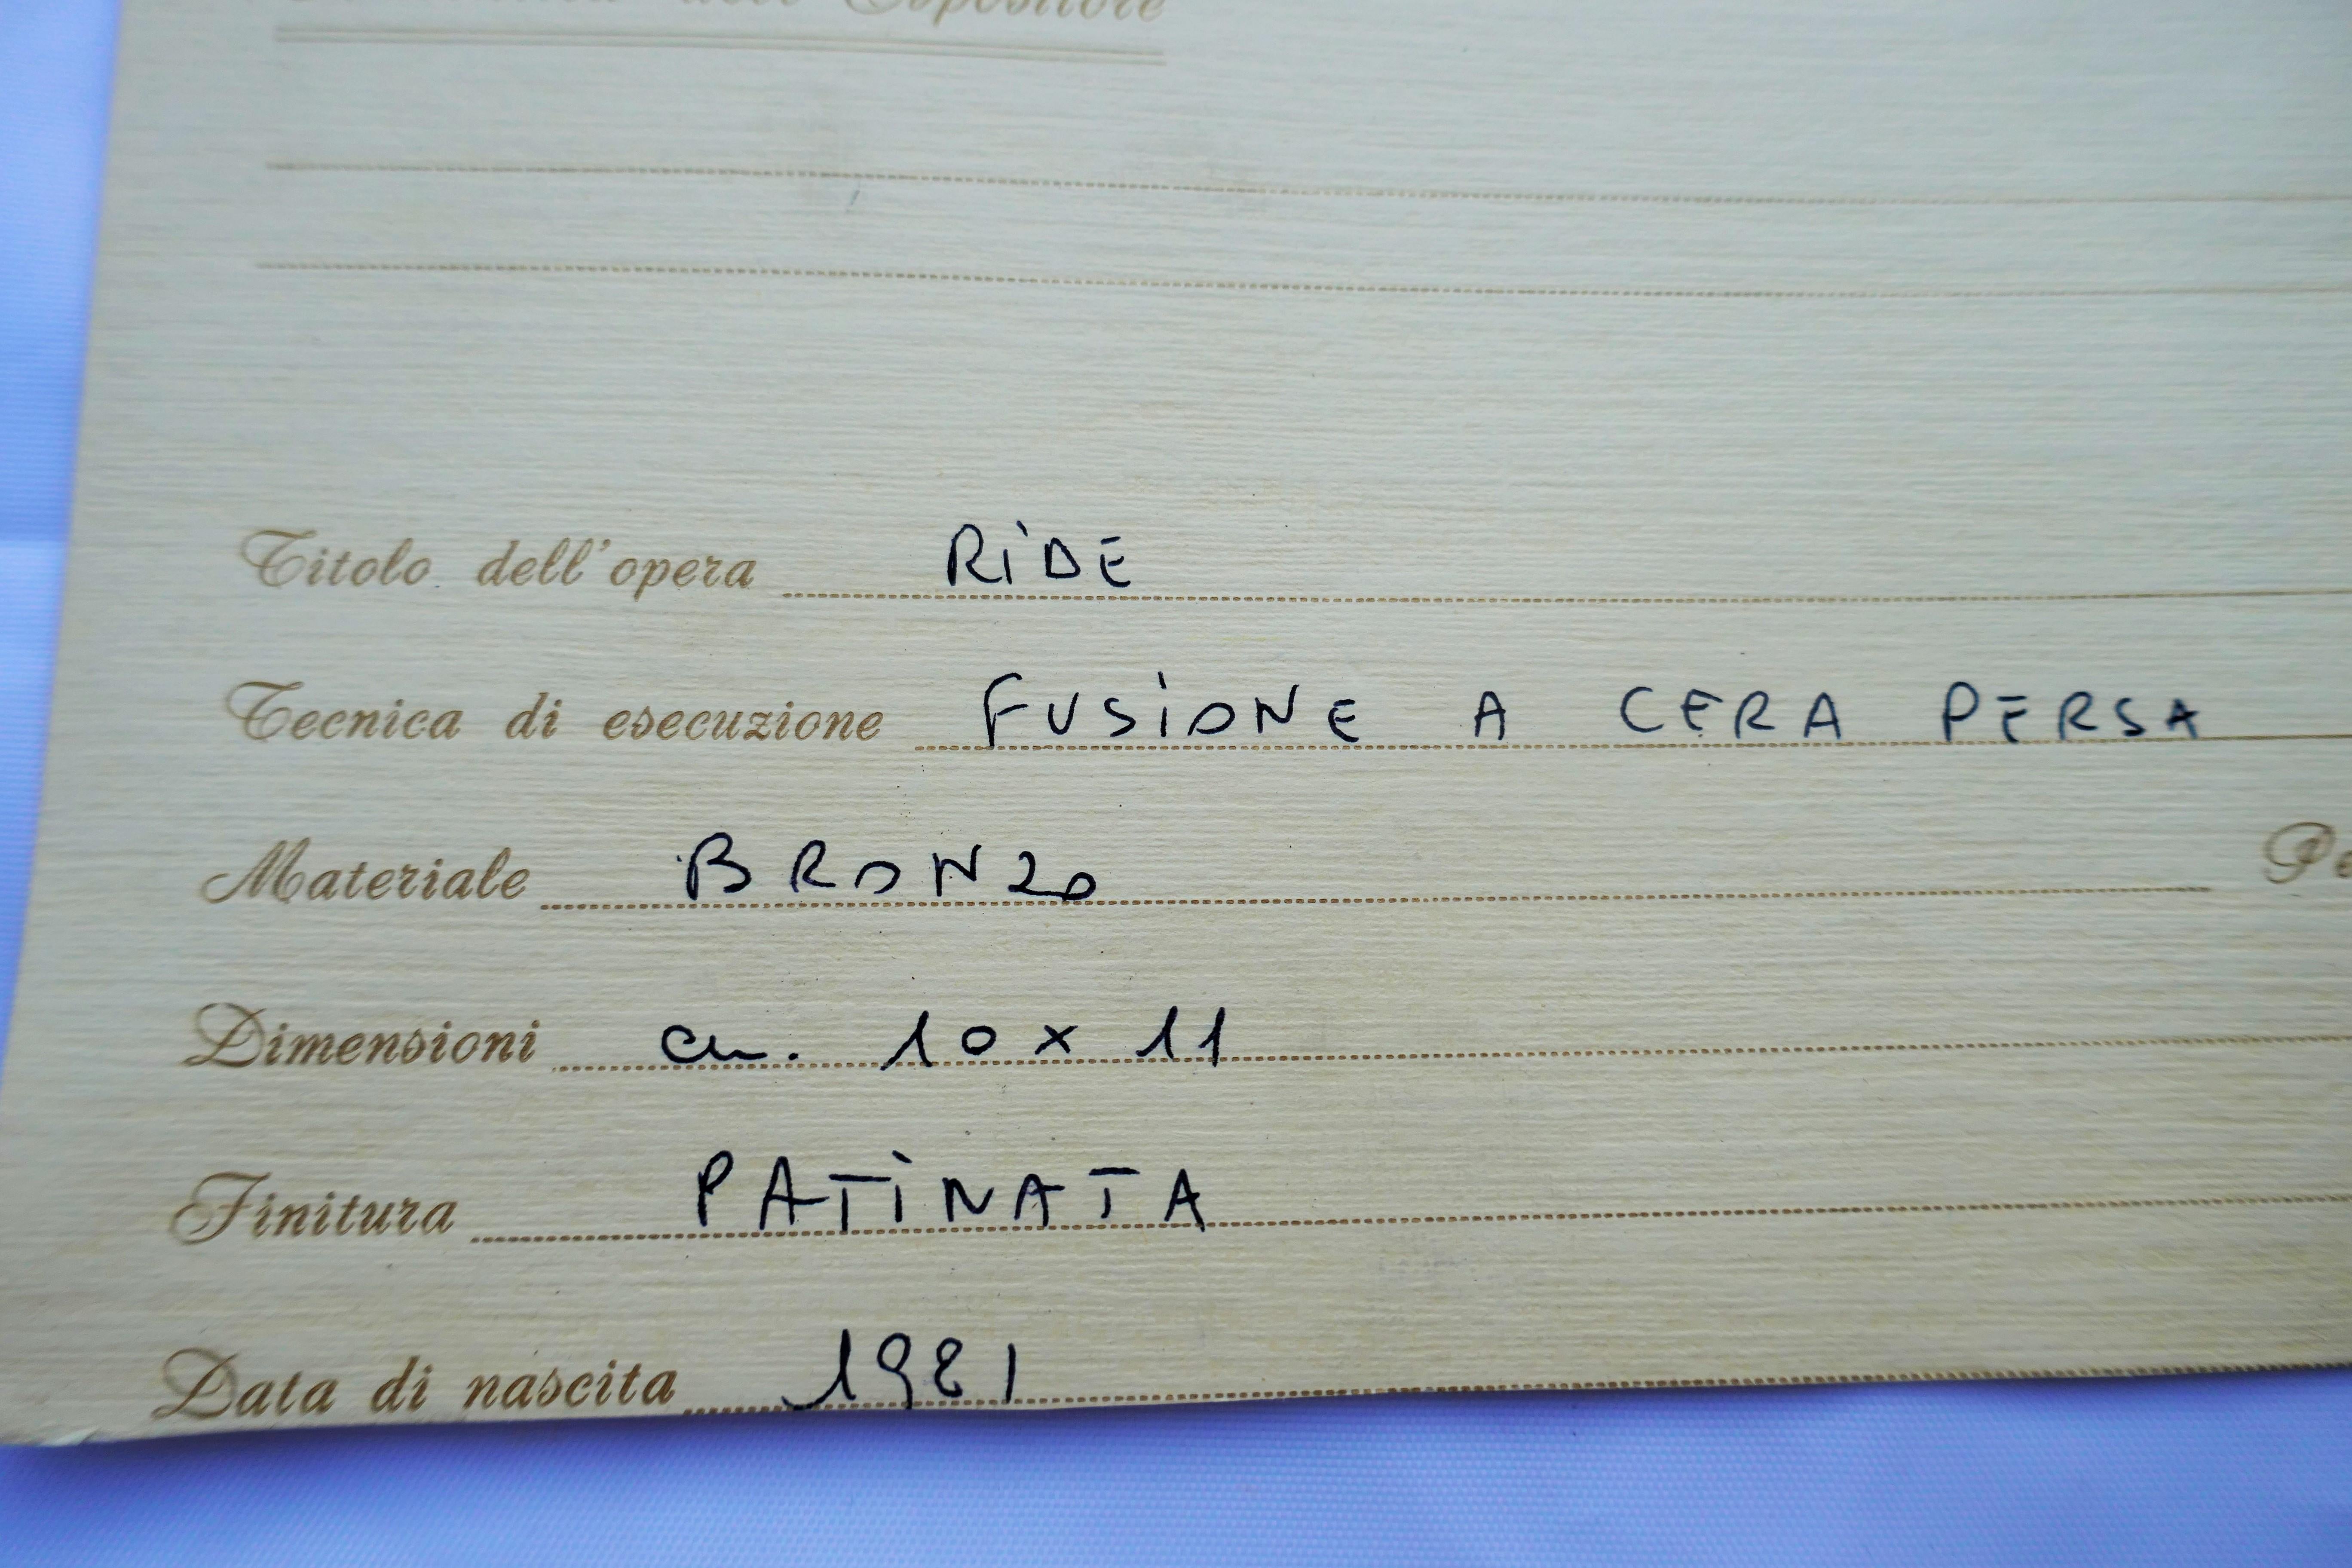 dell'Espositore
Titolo dell'opera RiDE
Tecnica di esecuzione FUSiONE A CERA PERSA
Materiale BRONZO
Dimensioni cm. 10 x 11
Finitura PATiNATA
Data di nascita 1981